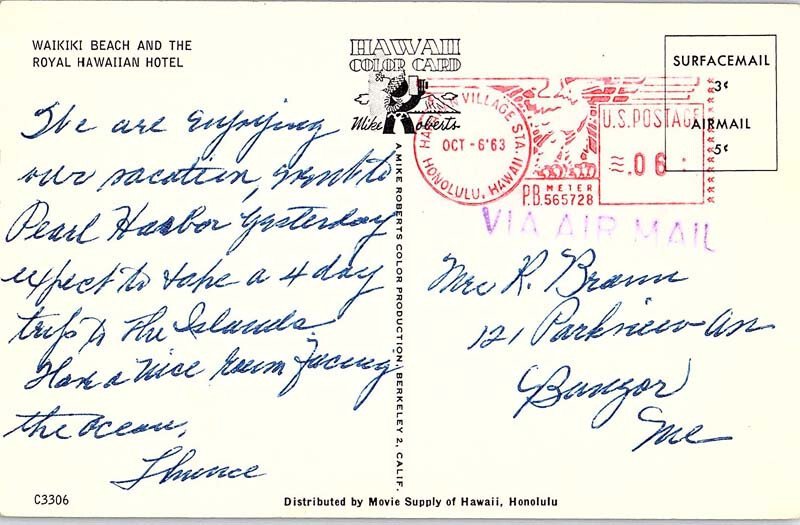 WAIKIKI BEACH AND THE
ROYAL HAWAIIAN HOTEL
HAWAII
COLOR CARD
Mike Roberts
We are enjoying
our vacation, went to
Pearl Harbor yesterday
expect to take a 4 day
trip to the Islands.
Have a nice room facing
the ocean.
C3306
A MIKE ROBERTS COLOR PRODUCTION, BERKELEY 2, CALIF.
Distributed by Movie Supply of Hawaii, Honolulu
VILLAGE STA.
OCT -6'63
HONOLULU, HAWAII
P.B. METER
565728
U.S. POSTAGE
.06
SURFACEMAIL
3¢
AIRMAIL
5¢
VIA AIR MAIL
Mrs R. Brown
121 Parkview Av
Bangor
Me